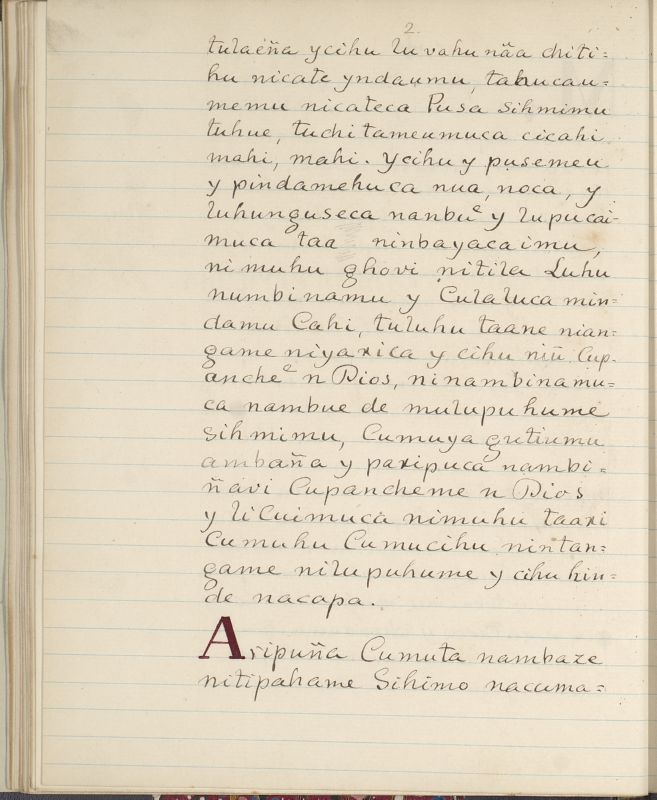 2
tulaéña y cihu lu vahu nãa chiti=
hu nicate yndaumu, tahucau=
memu nicateca Pusa sihmimu
tuhue, tuchi tameumuca cicahi
mahi, mahi. ycihu y pusemeu
y pindamehuca nua, noca, y
luhunguseca nanbuᵉ y lupucai-
muca taa ninbayacaimu,
nimuhu ghovi nitila Luhu
numbinamu y Culaluca min=
damu Cahi, tuluhu taane nian=
game niyaxica y cihu niū Cup-
ancheᵉ n Dios, ninambinamu=
ca nambue de mulupuhume
sihmimu, Cumuya gutiumu
ambaña y paxipuca nambi=
ñavi Cupancheme n Dios
y liCuimuca nimuhu taaxi
Cumuhu Cumucihu nintan=
game nilupuhume y cihu hin=
de nacapa.
Aripuña Cumuta nambaze
nitipahame Sihimo nacuma=